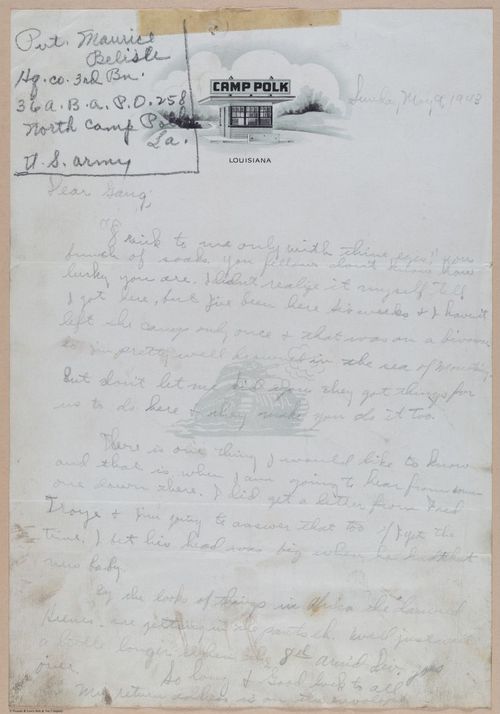 Pvt. Maurice
Belisle
Hq. co. 3rd Bn.
36 A. B. A. P. O. 258
North Camp Po
La.
U. S. army
CAMP POLK
LOUISIANA
Sunday May 9, 1943
Dear Gang,
Drink to me only with thine eyes! you
bunch of soaks you fellows don't know how
lucky you are. I didn't realize it myself till
I got here, but I've been here six weeks & I haven't
left the camp only once & that was on a
so I'm pretty well in the sea of
But don't let me kid you they got things for
us to do here & they make you do it too.
There is one thing I would like to know
and that is when I am going to hear from some
one down there. I did get a letter from Fred
Troye & I'm going to answer that too if I get the
time. I bet his head was big when he had that
new baby.
By the looks of things in Africa the damned
are getting in the well just wait
a little longer when the 8th arm'd Div. goes
over.
So long & Good luck to all
My return address is on the envelope